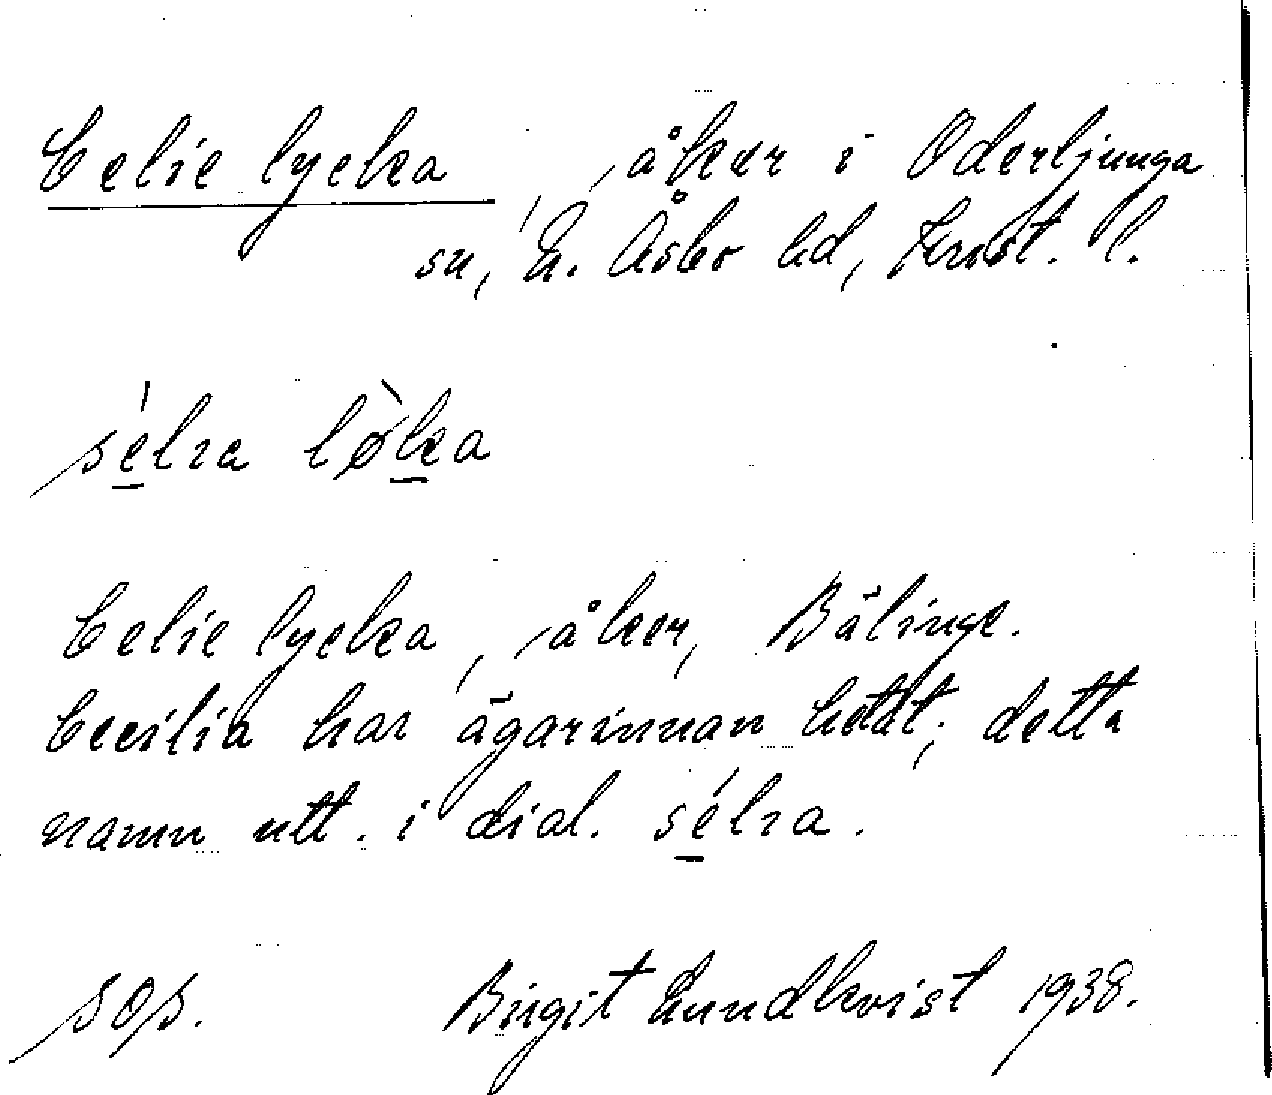 Celie lycka, åker i Oderljunga
sn, N. Åsbo hd, Krist. l.
sélıa lø̀ka
Celie lycka, åker, Bälinge.
Cecilia har ägarinnan hetat; detta
namn utt. i dial. sélıa.
sps. Birgit Lundkvist 1938.